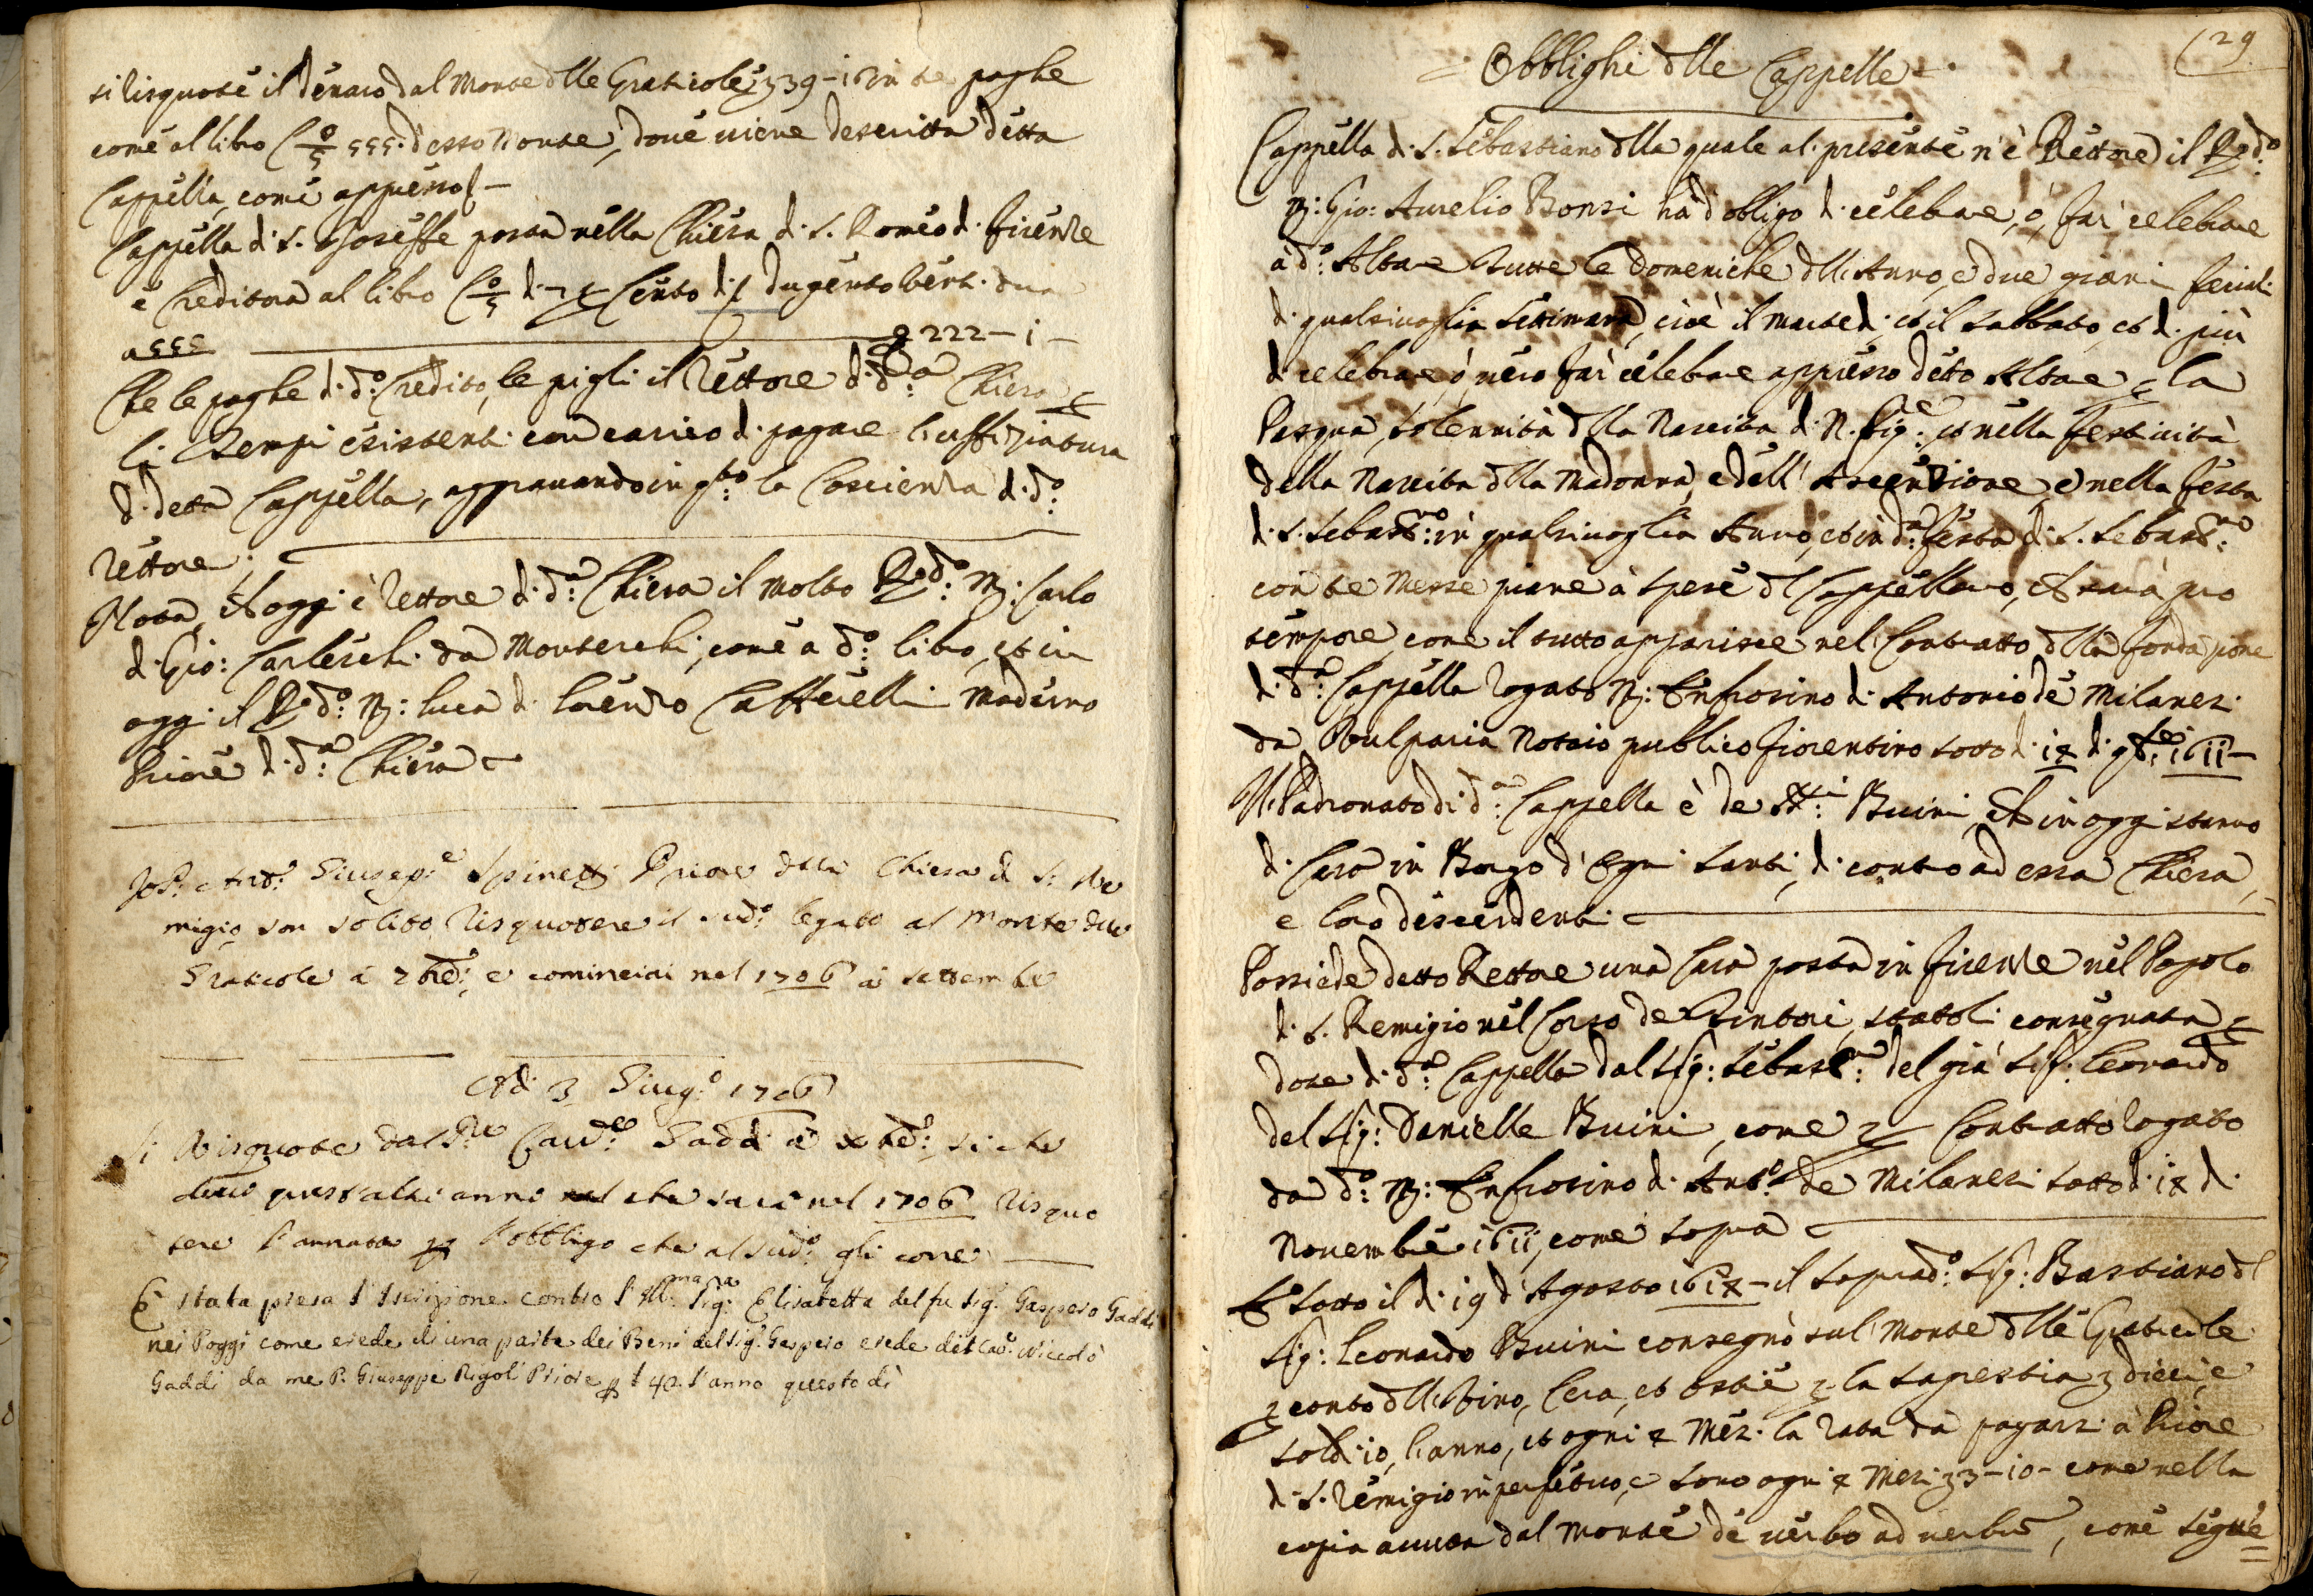 si risquote il denaro dal Monte dlle Graticole, 39-i6 in tre paghe
come al libro 555. d'esso Monte, dove viene descritta detta
Cappella, come appresso
Cappella di S. Gioseffe posta nella Chiesa di S. Romeo di Firenze
è Creditora al libro Cento di dugentoventi due
a 555 222-i-
Che le paghe di d.o Credito, le pigli il Rettore di d.a Chiesa
li Tempi esistenti con carico di pagare l'uffiziatura
di detta Cappella, aggravando in q.to la Coscienza di d.o
Rettore.
Nota, Et oggi è Rettore di d.a Chiesa il Molto R.do M: Carlo
di Gio: Carleschi da Monterchi, come a d.o libro, et in
oggi il R.do M: Luca di Lorenzo Catterelli Moderno
Priore di d.a Chiesa
Io P: Ant.o Giusep.e Spinetti Priore della Chiesa di S: Re
migio son solito risquotere il sud.o legato al Monte delle
Graticole a 7bre: e cominciai nel 1706 a settembre
Adi 3 Giug.o 1706
Si Risquote dal Sre Cav.re Gaddi a xbre: si che
devo quest'altri anni che sarà nel 1706 risquo
tere l'annata l'obbligo che al sud.o gli corre
È stata presa l'Iscrizione contro l'Ill.ma Sig.ra Elisabetta del fu Sig. Gaspero Gaddi
nei Poggi come erede di una parte dei Beni del Sig. Gaspero erede del Cav. Niccolò
Gaddi da me P. Giuseppe Rigoli Priore p 40. l'anno questo dì
29
Obblighi dlle Cappelle
Cappella di S. Sebastiano dlla quale al presente n'è Rettore il R.do
M: Gio: Aurelio Bonsi hà d'obligo di celebrare, ò, far celebrare
a d.o Altare tutte le Domeniche dll'Anno, e due giorni feriali
di qualsivoglia Settimana, cioè il Martedi, et il Sabbato, et di più
di celebrare, ò vero far celebrare appresso detto Altare la
Pasqua, solennità dlla Nascita di N. Sig.e et nella festività
della Nascita dlla Madonna, e dell'Ascenzione, e nella festa
di S. Sebast.no in qualsivoglia Anno, et in d.a festa di S. Sebast.no
con tre Messe piane à spese dl Cappellano, che sarà pro
tempore, come il tutto apparisce nel Contratto dlla fondazione
di d.a Cappella rogato M: Enfrosino di Antonio de Milanesi
da Vulparia Notaio publico fiorentino sotto di i7 di 9bre i6ii-
Il Padronato di d.a Cappella è de SSri Buini, Et in oggi stanno
di Casa in Borgo d'Ogni Santi, di contro ad essa Chiesa,
e loro discendenti
Possiede detto Rettore una Casa posta in Firenze nel Popolo
di S. Remigio nel Corso de Tintori, statoli consegnata
dote di d.a Cappella dal Sig: Sebast.no del già Sig: Leonardo
del Sig: Danielle Buini, come Contratto rogato
da d.o M: Enfrosino di Ant.o de Milanesi sotto di i7 di
Novembre i6ii, come sopra
E sotto il di i9 d'Agosto i6i7- il soprad.o Sig: Bastiano dl
Sig: Leonardo Buini consegnò sul Monte dlle Graticole
conto dll Vino, Cera, et Ostie la Sagrestia dieci, e
soldi i0, l'anno, et ogni 4 Mesi la rata dà pagarsi à Priore
di S. Remigio in perpetuo, e sono ogni 4 Mesi 3-i0- come nella
copia avuta dal Monte de verbo ad verbum, come segue